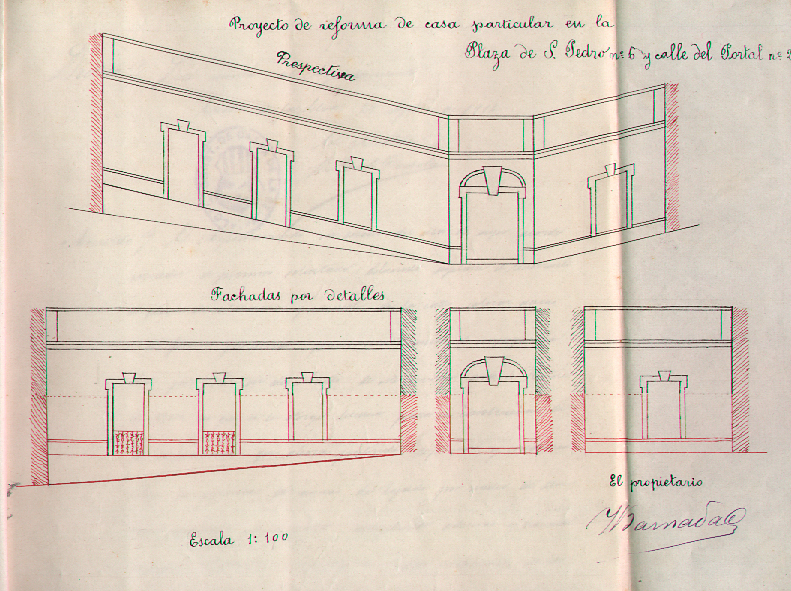 Proyecto de reforma de casa particular en la
Plaza de S. Pedro nº 6 y calle del Portal nº 2
Prespectiva
Fachadas por detalles
El propietario
Escala 1:100